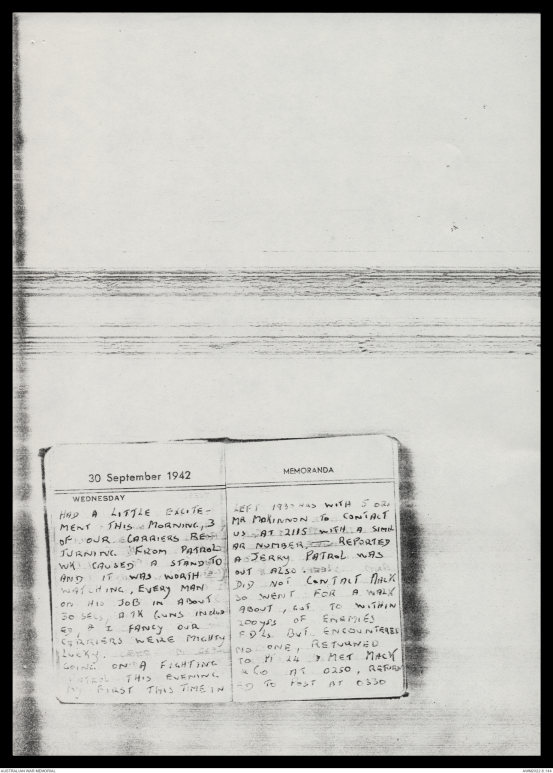 30 September 1942
WEDNESDAY
HAD A LITTLE EXCITE-
MENT THIS MORNING, 3
OF OUR CARRIERS RE-
TURNING FROM PATROL
WK CAUSED A STAND TO
AND IT WAS WORTH
WATCHING, EVERY MAN
ON HIS JOB IN ABOUT
30 SECS, A.TK GUNS INCLUD
ED, & I FANCY OUR
CARRIERS WERE MIGHTY
LUCKY.
GOING ON A FIGHTING
PATROL THIS EVENING
MY FIRST THIS TIME IN
MEMORANDA
LEFT 1930 HRS WITH 5 OR.
MR MCKINNON TO CONTACT
US AT 2115 WITH A SIMIL
AR NUMBER, REPORTED
A JERRY PATROL WAS
OUT ALSO.
DID NOT CONTACT MACK
SO WENT FOR A WALK
ABOUT, GOT TO WITHIN
200YDS OF ENEMIES
FDLS BUT ENCOUNTERED
NO ONE, RETURNED
TO 24 & MET MACK
& CO AT 0250, RETURN
ED TO POST AT 0330
AUSTRALIAN WAR MEMORIAL